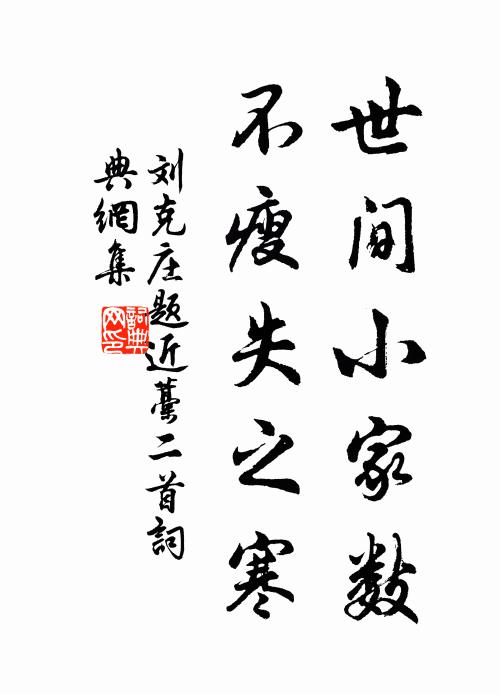 世间小家数
不瘦失之寒
刘克庄题近藁二首詞
典網集
詞典网印